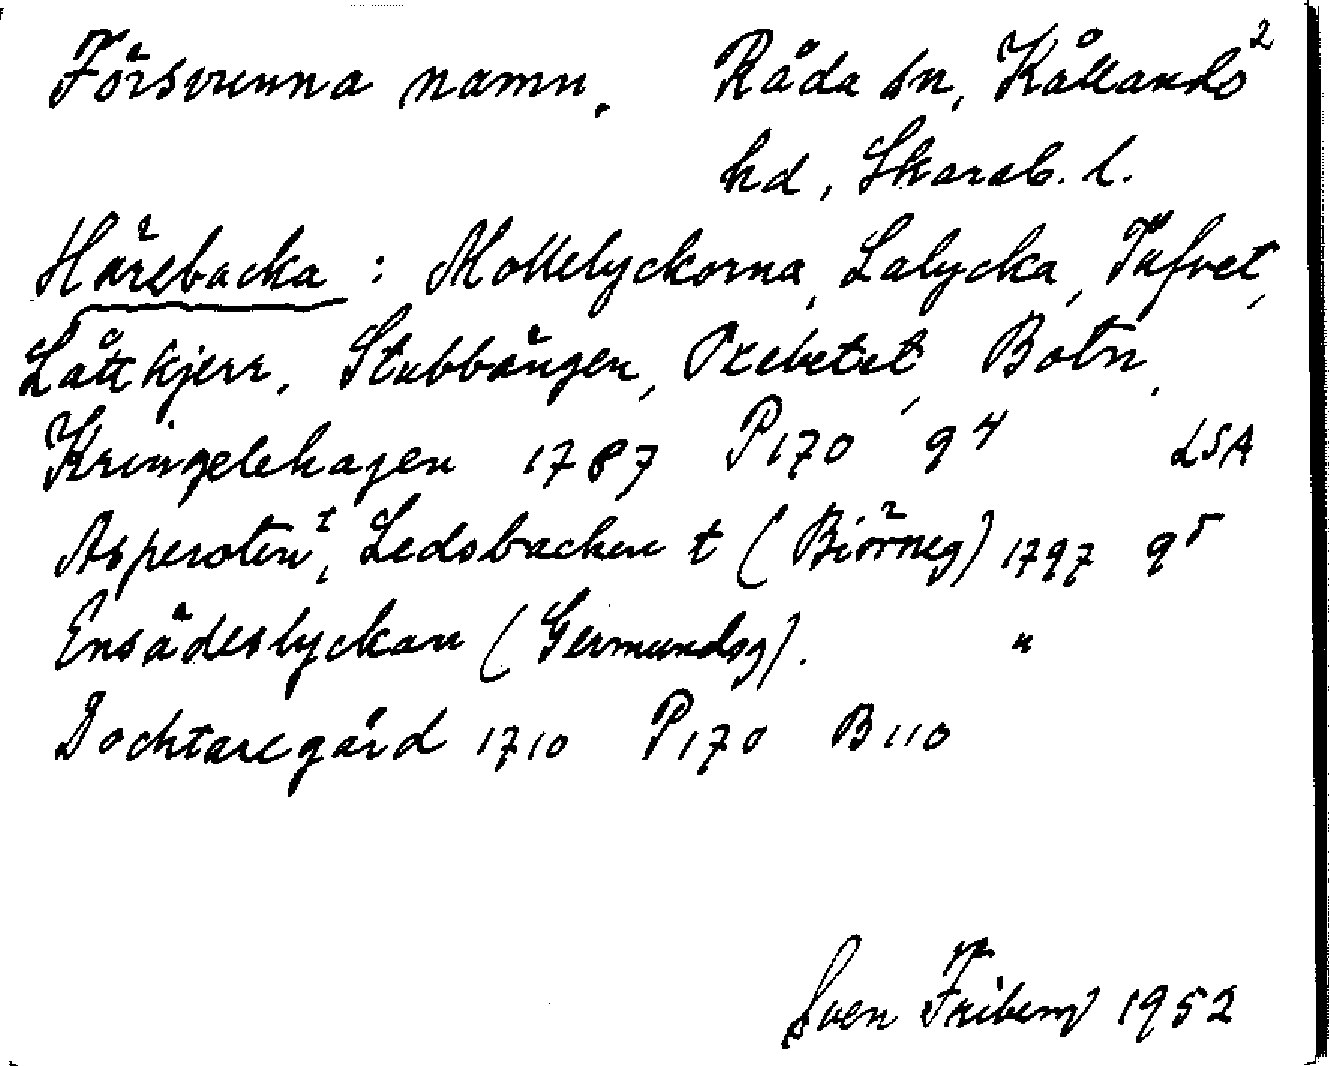 Försvunna namn. Råda sn, Kållands 2
hd, Skarab. l.
Härebacka : Mollelyckorna, Lalycka, Tufvet,
Låttkjerr, Stubbängen, Oxebetet, Botn,
Kringelehagen 1787 P170 9 4 LSA
Asperoten t, Ledsbacken t (Biörneg) 1797 9 5
Ensädeslyckan (Germundsg). "
Dochtaregård 1710 P170 B110
Sven Friberg 1952